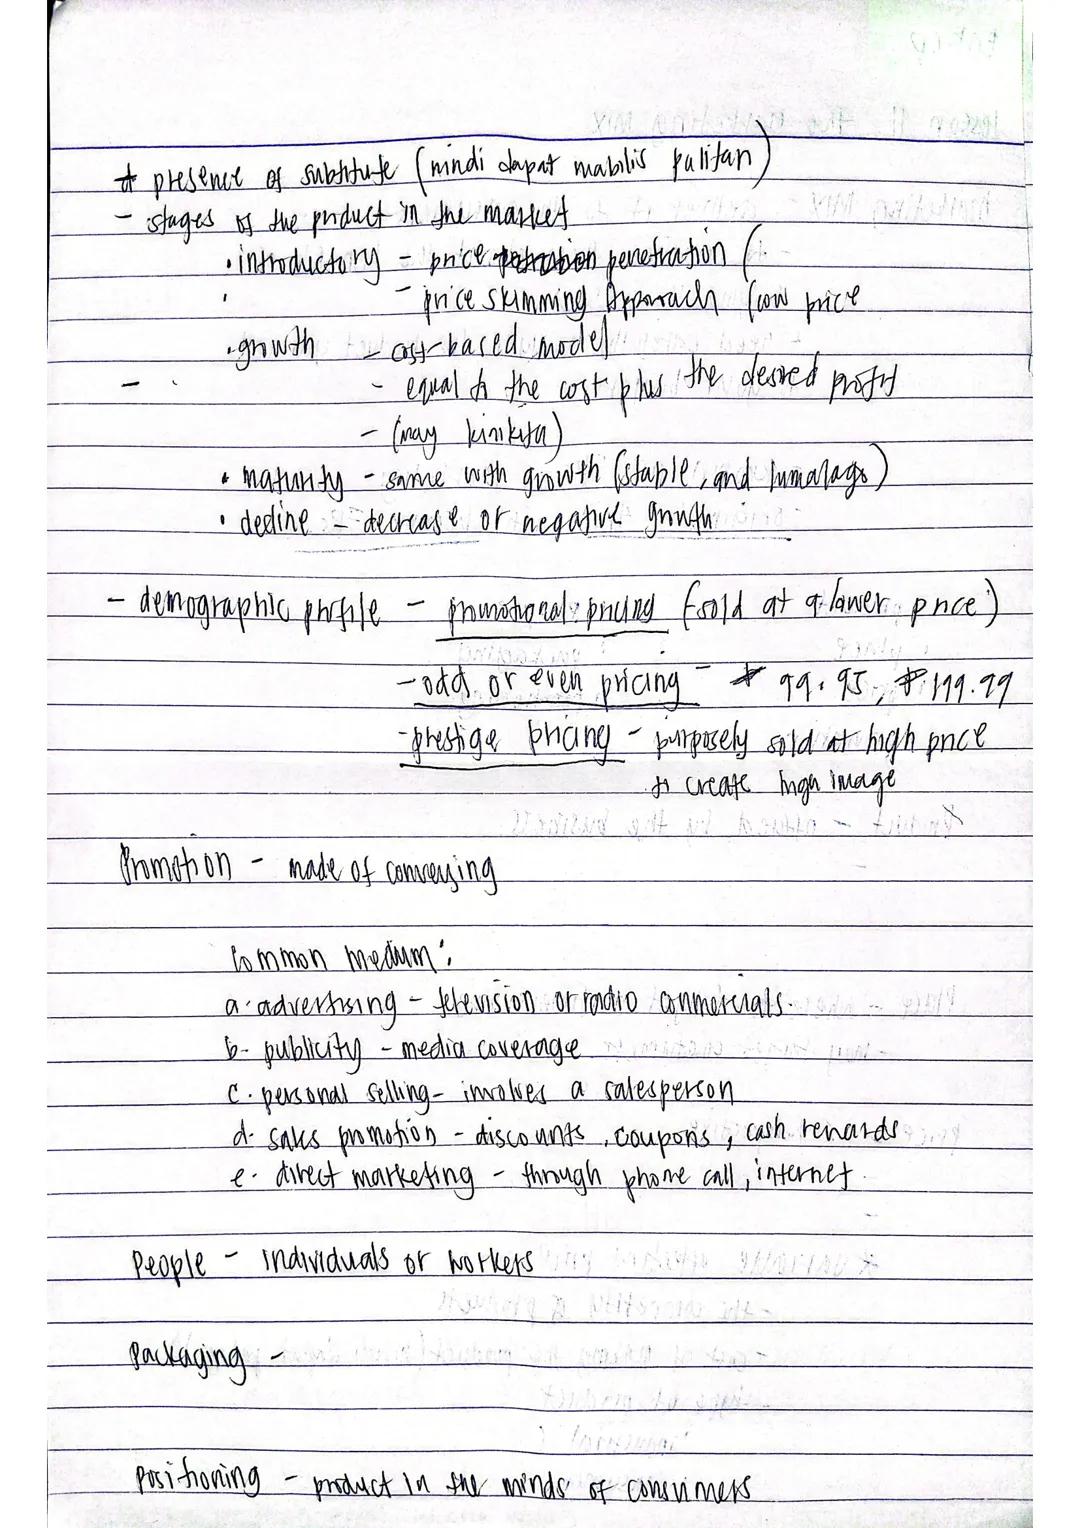 * presence of substitute (hindi dapat mabilis palitan)
- stages of the product in the market
• introductory - price penetration (
- price skimming Approach (low price
• growth - cost-based model
- equal to the cost plus the desired profit
- (may kinikita)
• maturity - same with growth (stable, and lumalago)
• decline - decrease or negative growth
- demographic profile - promotional pricing (-sold at a lower price)
- odd or even pricing - ₱ 99.95, ₱199.99
- prestige pricing - purposely sold at high price
to create high image
Promotion - made of conveying
Common medium:
a. advertising - television or radio commercials.
b. publicity - media coverage
c. personal selling - involves a salesperson
d. sales promotion - discounts, coupons, cash rewards
e. direct marketing - through phone call, internet.
People - individuals or workers
Packaging -
Positioning - product in the minds of consumers